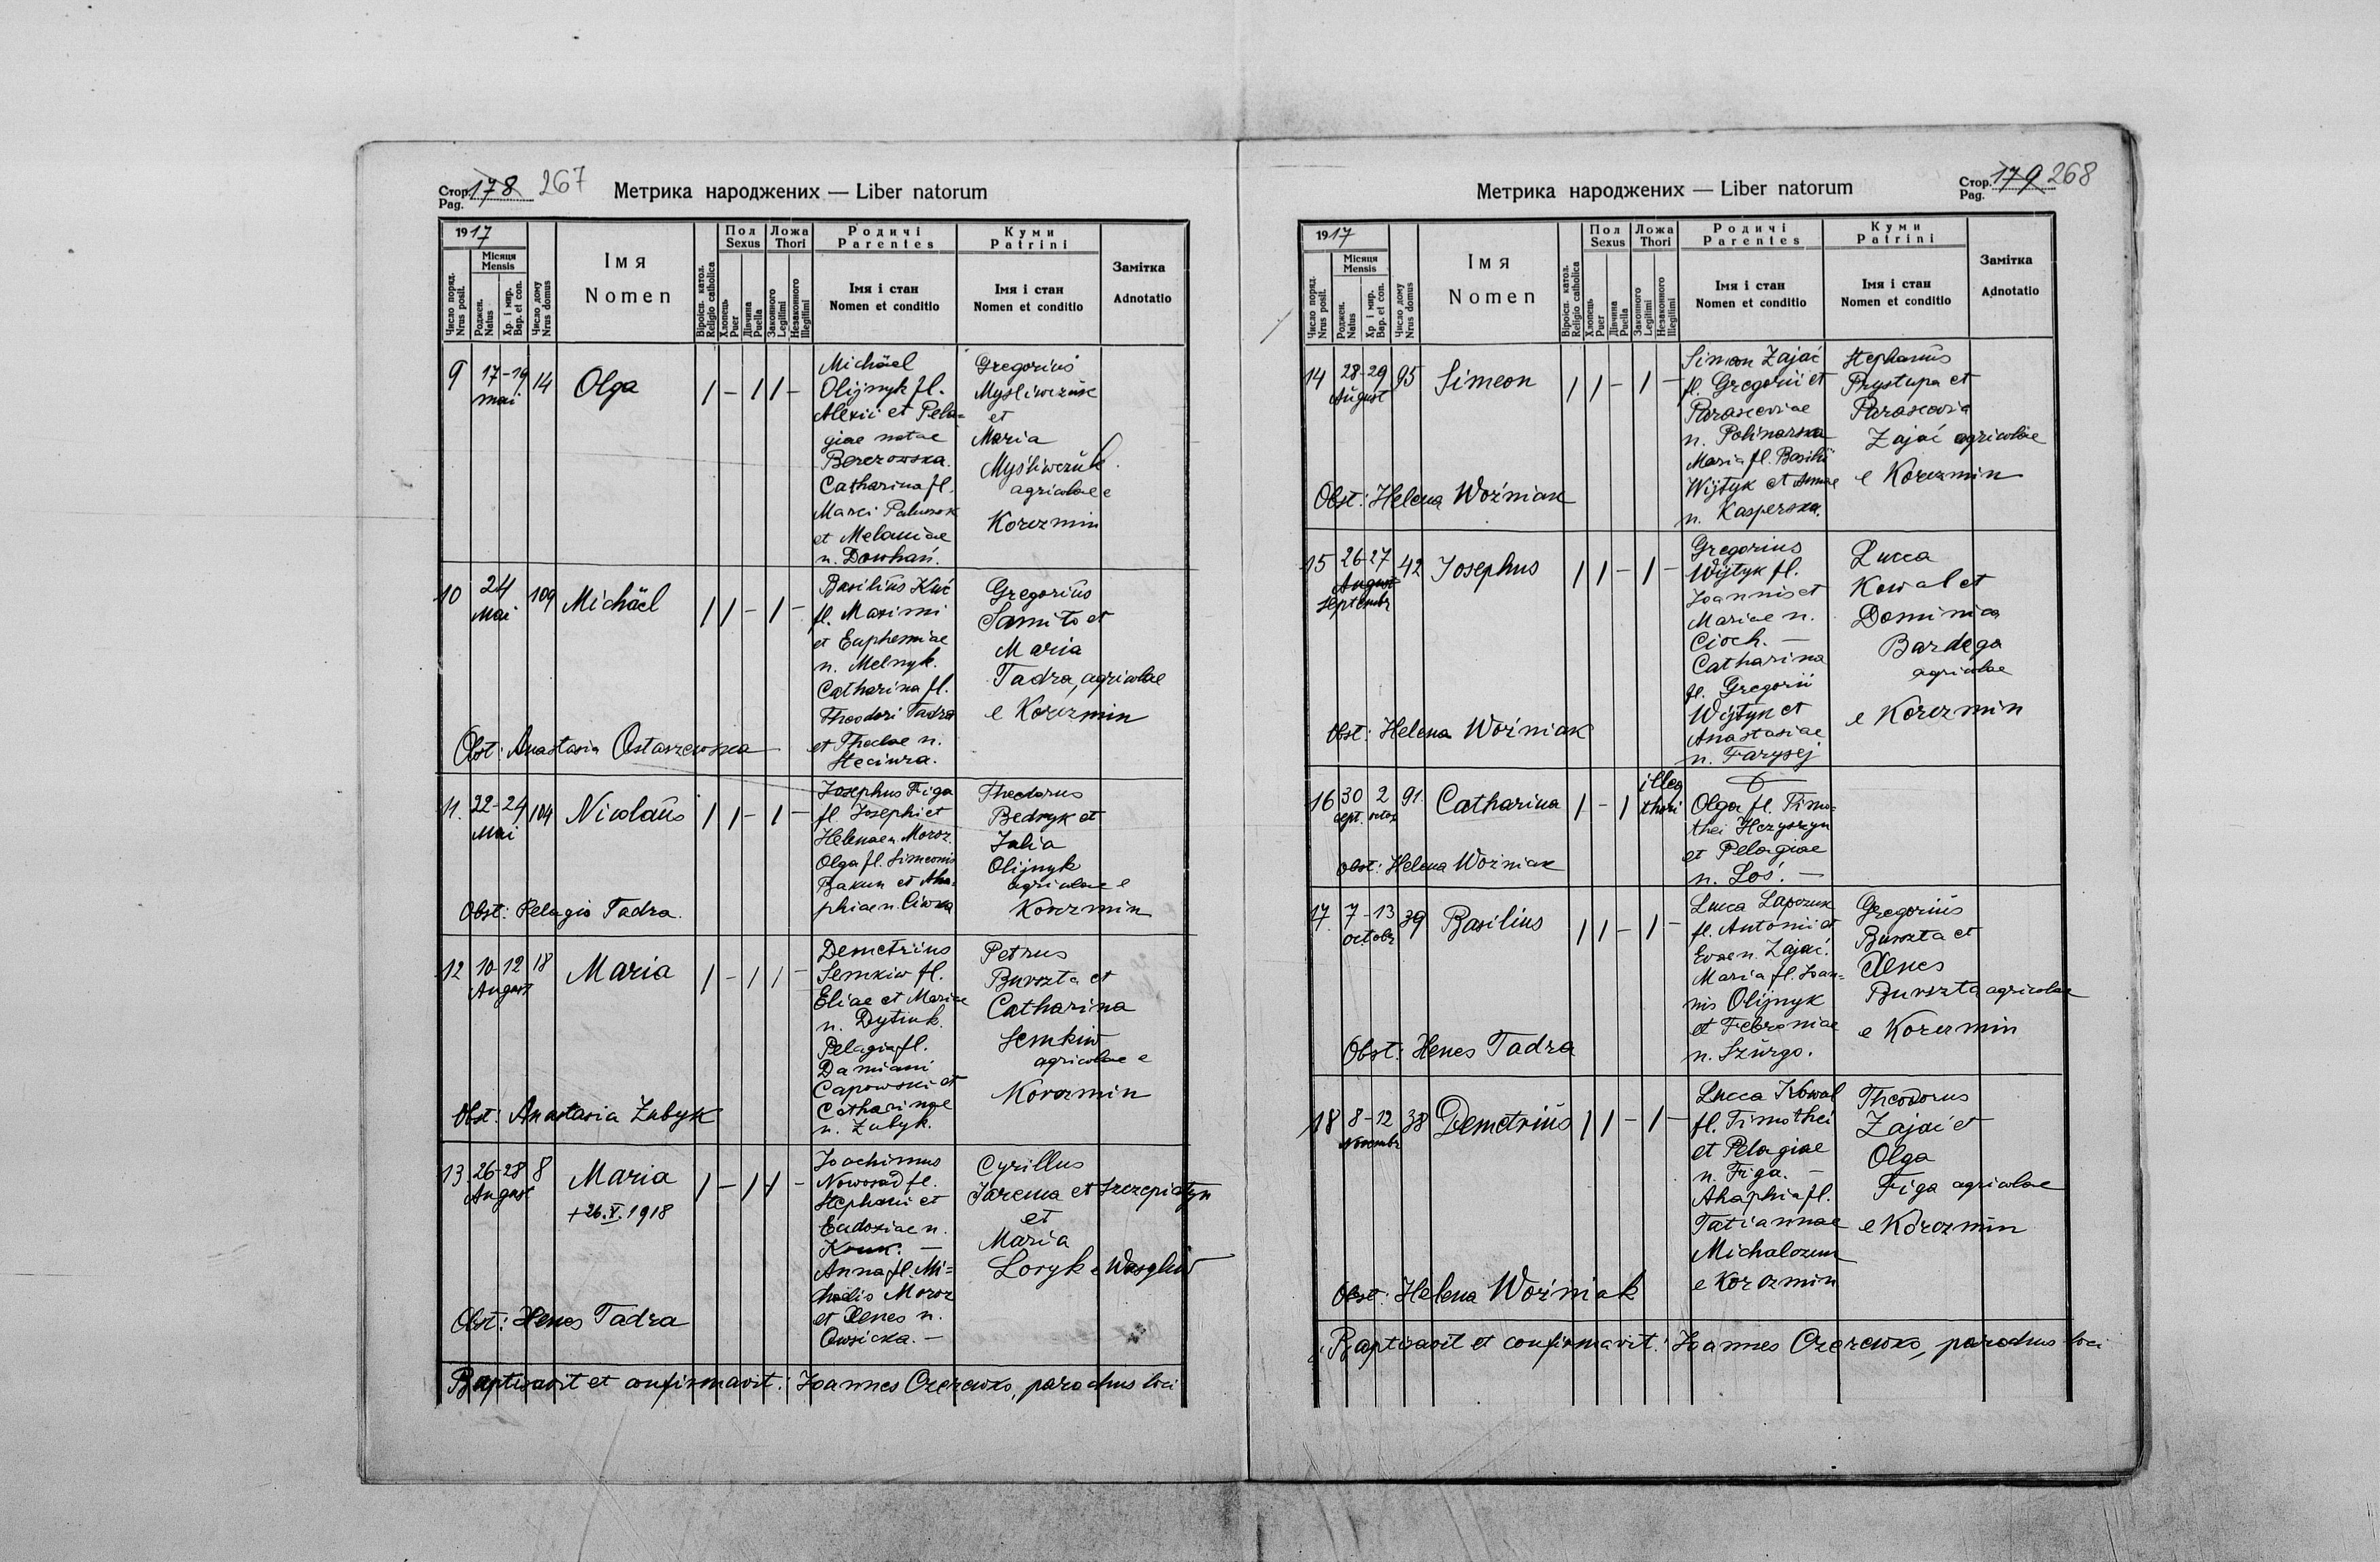 Стор. 178 267
Pag.
Метрика народжених — Liber natorum
1917
Місяця
Mensis
Число поряд.
Nrus posit.
Роджен.
Natus
Хр. і мир.
Bap. et con.
Число дому
Nrus domus
Імя
Nomen
Віроісп. катол.
Religio catholica
Пол
Sexus
Хлопець
Puer
Дівчина
Puella
Ложа
Thori
Законного
Legitimi
Незаконного
Illegitimi
Родичі
Parentes
Імя і стан
Nomen et conditio
Куми
Patrini
Імя і стан
Nomen et conditio
Замітка
Adnotatio
9 17-19 mai 14 Olga 1 - 1 1 -
Michäel
Olijnyk fl.
Alexii et Pela=
giae natae
Berezowska.
Catharina fl.
Marci
et Melaniae
n. Dowhań.
Gregorius
Myśliwczuk
et
Maria
Myśliwczuk
agricolae e
Korczmin
10 24 Mai 109 Michäel 1 1 - 1 -
Basilius Kuć
fl. Maximi
et Euphemiae
n. Melnyk.
Catharina fl.
Theodori Tadra
et Theclae n.
Steciura.
Gregorius
Samito et
Maria
Tadra, agricolae
e Korczmin
Obst: Anastasia Ostaszewska
11. 22-24 Mai 104 Nicolaus 1 1 - 1 -
Josephus Figa
fl. Josephi et
Helenae n. Moroz.
Olga fl. Simeonis
Bakun et Aha=
phiae n. Ciwka
Theodorus
Bedryk et
Julia
Olijnyk
agricolae e
Korczmin
Obst: Pelagia Tadra.
12 10-12 August 18 Maria 1 - 1 1 -
Demetrius
Semkiw fl.
Eliae et Mariae
n. Dytiuk.
Pelagia fl.
Damiani
Capowski et
Catharinae
n. Zubyk.
Petrus
Burszta et
Catharina
Semkiw
agricolae e
Korczmin
Obst: Anastasia Zubyk
13. 26-28 August 8 Maria 1 - 1 1 -
+26.V.1918
Joachimus
Nowosad fl.
Stephani et
Eudoxiae n.
Kouk. —
Anna fl. Mi=
chaelis Moroz
et Xenes n.
Owsicka. —
Cyrillus
Jarema et Szczepiatyn
et
Maria
Loryk e Wasylów
Obst: Xenes Tadra
Baptisavit et confirmavit: Joannes Czerewko, parochus loci
Метрика народжених — Liber natorum
Стор. 179 268
Pag.
1917
Місяця
Mensis
Число поряд.
Nrus posit.
Роджен.
Natus
Хр. і мир.
Bap. et con.
Число дому
Nrus domus
Імя
Nomen
Віроісп. катол.
Religio catholica
Пол
Sexus
Хлопець
Puer
Дівчина
Puella
Ложа
Thori
Законного
Legitimi
Незаконного
Illegitimi
Родичі
Parentes
Імя і стан
Nomen et conditio
Куми
Patrini
Імя і стан
Nomen et conditio
Замітка
Adnotatio
14 28-29 August 95 Simeon 1 1 - 1 -
Simeon Zajać
fl. Gregorii et
Parasceviae
n. Polinarska
Maria fl. Basilii
Wijtyk et Annae
n. Kasperska.
Stephanus
Prystupa et
Parascevia
Zajać agricolae
e Korczmin
Obst: Helena Woźniak
15 26-27 August Septembr 42 Josephus 1 1 - 1 -
Gregorius
Wijtyk fl.
Joannis et
Mariae n.
Cioch. —
Catharina
fl. Gregorii
Wijtyk et
Anastasiae
n. Faryzej
Lucca
Kowal et
Dominica
Bardega
agricolae
e Korczmin
Obst: Helena Woźniak
16 30 sept. 2 octob 91. Catharina 1 - 1 illeg thori
Olga fl. Timo=
thei Hryszyn
et Pelagiae
n. Łoś. —
Obst: Helena Woźniak
17. 7-13 octobr 39 Basilius 1 1 - 1 -
Lucca Lapczuk
fl. Antonii et
Evae n. Zajać.
Maria fl. Joan=
nis Olijnyk
et Febroniae
n. Szurgo.
Gregorius
Burszta et
Xenes
Burszta agricolae
e Korczmin
Obst: Xenes Tadra
18 8-12 Novembr 38 Demetrius 1 1 - 1 -
Lucca Kowal
fl. Timothei
et Pelagiae
n. Figa. —
Ahaphia fl.
Tatiannae
Michalczuk
e Korczmin
Theodorus
Zajać et
Olga
Figa agricolae
e Korczmin
Obst: Helena Woźniak
Baptisavit et confirmavit: Joannes Czerewko, parochus loci